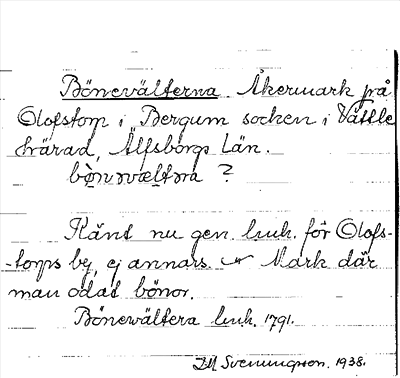 Bönevälterna. Åkermark på
Olofstorp i Bergum socken i Vättle
härad, Älfsborgs Län.
bö̀nvæltɘra ?
Känt nu gen. luk. för Olofs-
-torps by, ej annars. Mark där
man odat bönor.
Bönewältera luk. 1791.
Svenungsson. 1938.